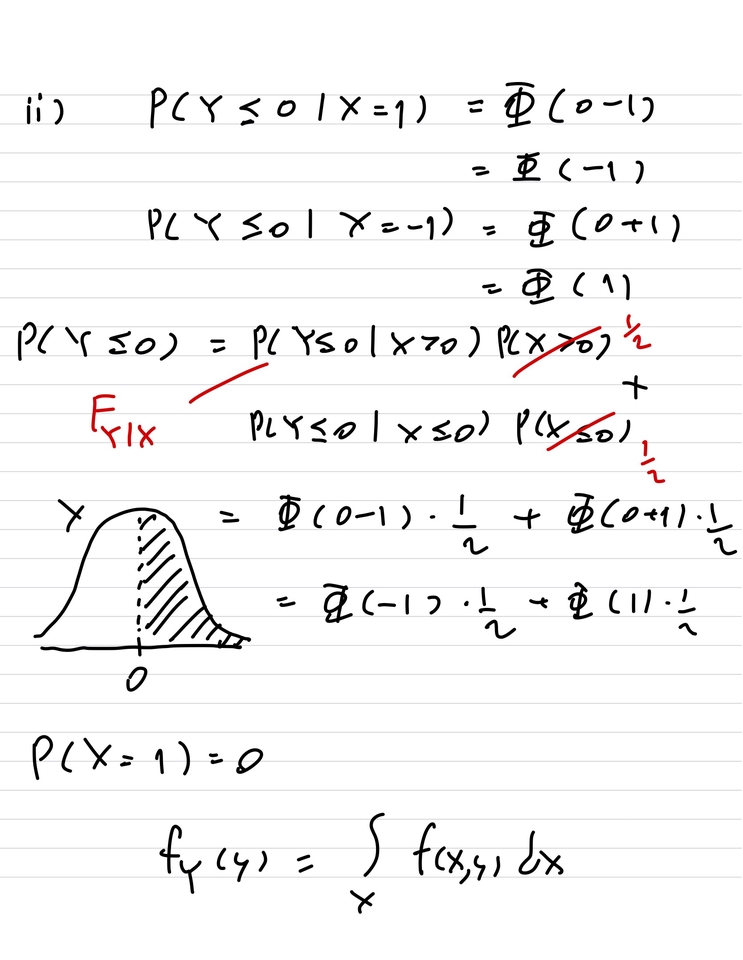 ii) P(Y ≤ 0 | X = 1) = Φ(0-1)
= Φ(-1)
P(Y ≤ 0 | X = -1) = Φ(0+1)
= Φ(1)
P(Y ≤ 0) = P(Y ≤ 0 | X > 0) P(X > 0) 1/2
+
F_{Y|X} P(Y ≤ 0 | X ≤ 0) P(X ≤ 0) 1/2
X = Φ(0-1) · 1/2 + Φ(0+1) · 1/2
= Φ(-1) · 1/2 + Φ(1) · 1/2
0
P(X = 1) = 0
f_Y(y) = ∫_X f(x,y) dx